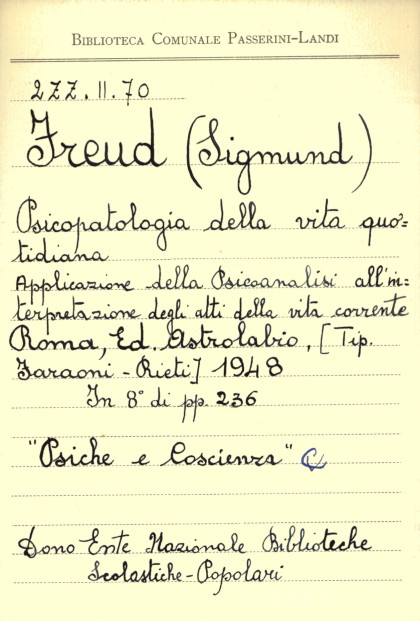 BIBLIOTECA COMUNALE PASSERINI-LANDI
2ZZ.II.70
Freud (Sigmund)
Psicopatologia della vita quo=
tidiana
Applicazione della Psicoanalisi all'in=
terpretazione degli atti della vita corrente
Roma, Ed. Astrolabio, [Tip.
Faraoni - Rieti] 1948
In 8° di pp. 236
"Psiche e Coscienza"
Dono Ente Nazionale Biblioteche
Scolastiche-Popolari